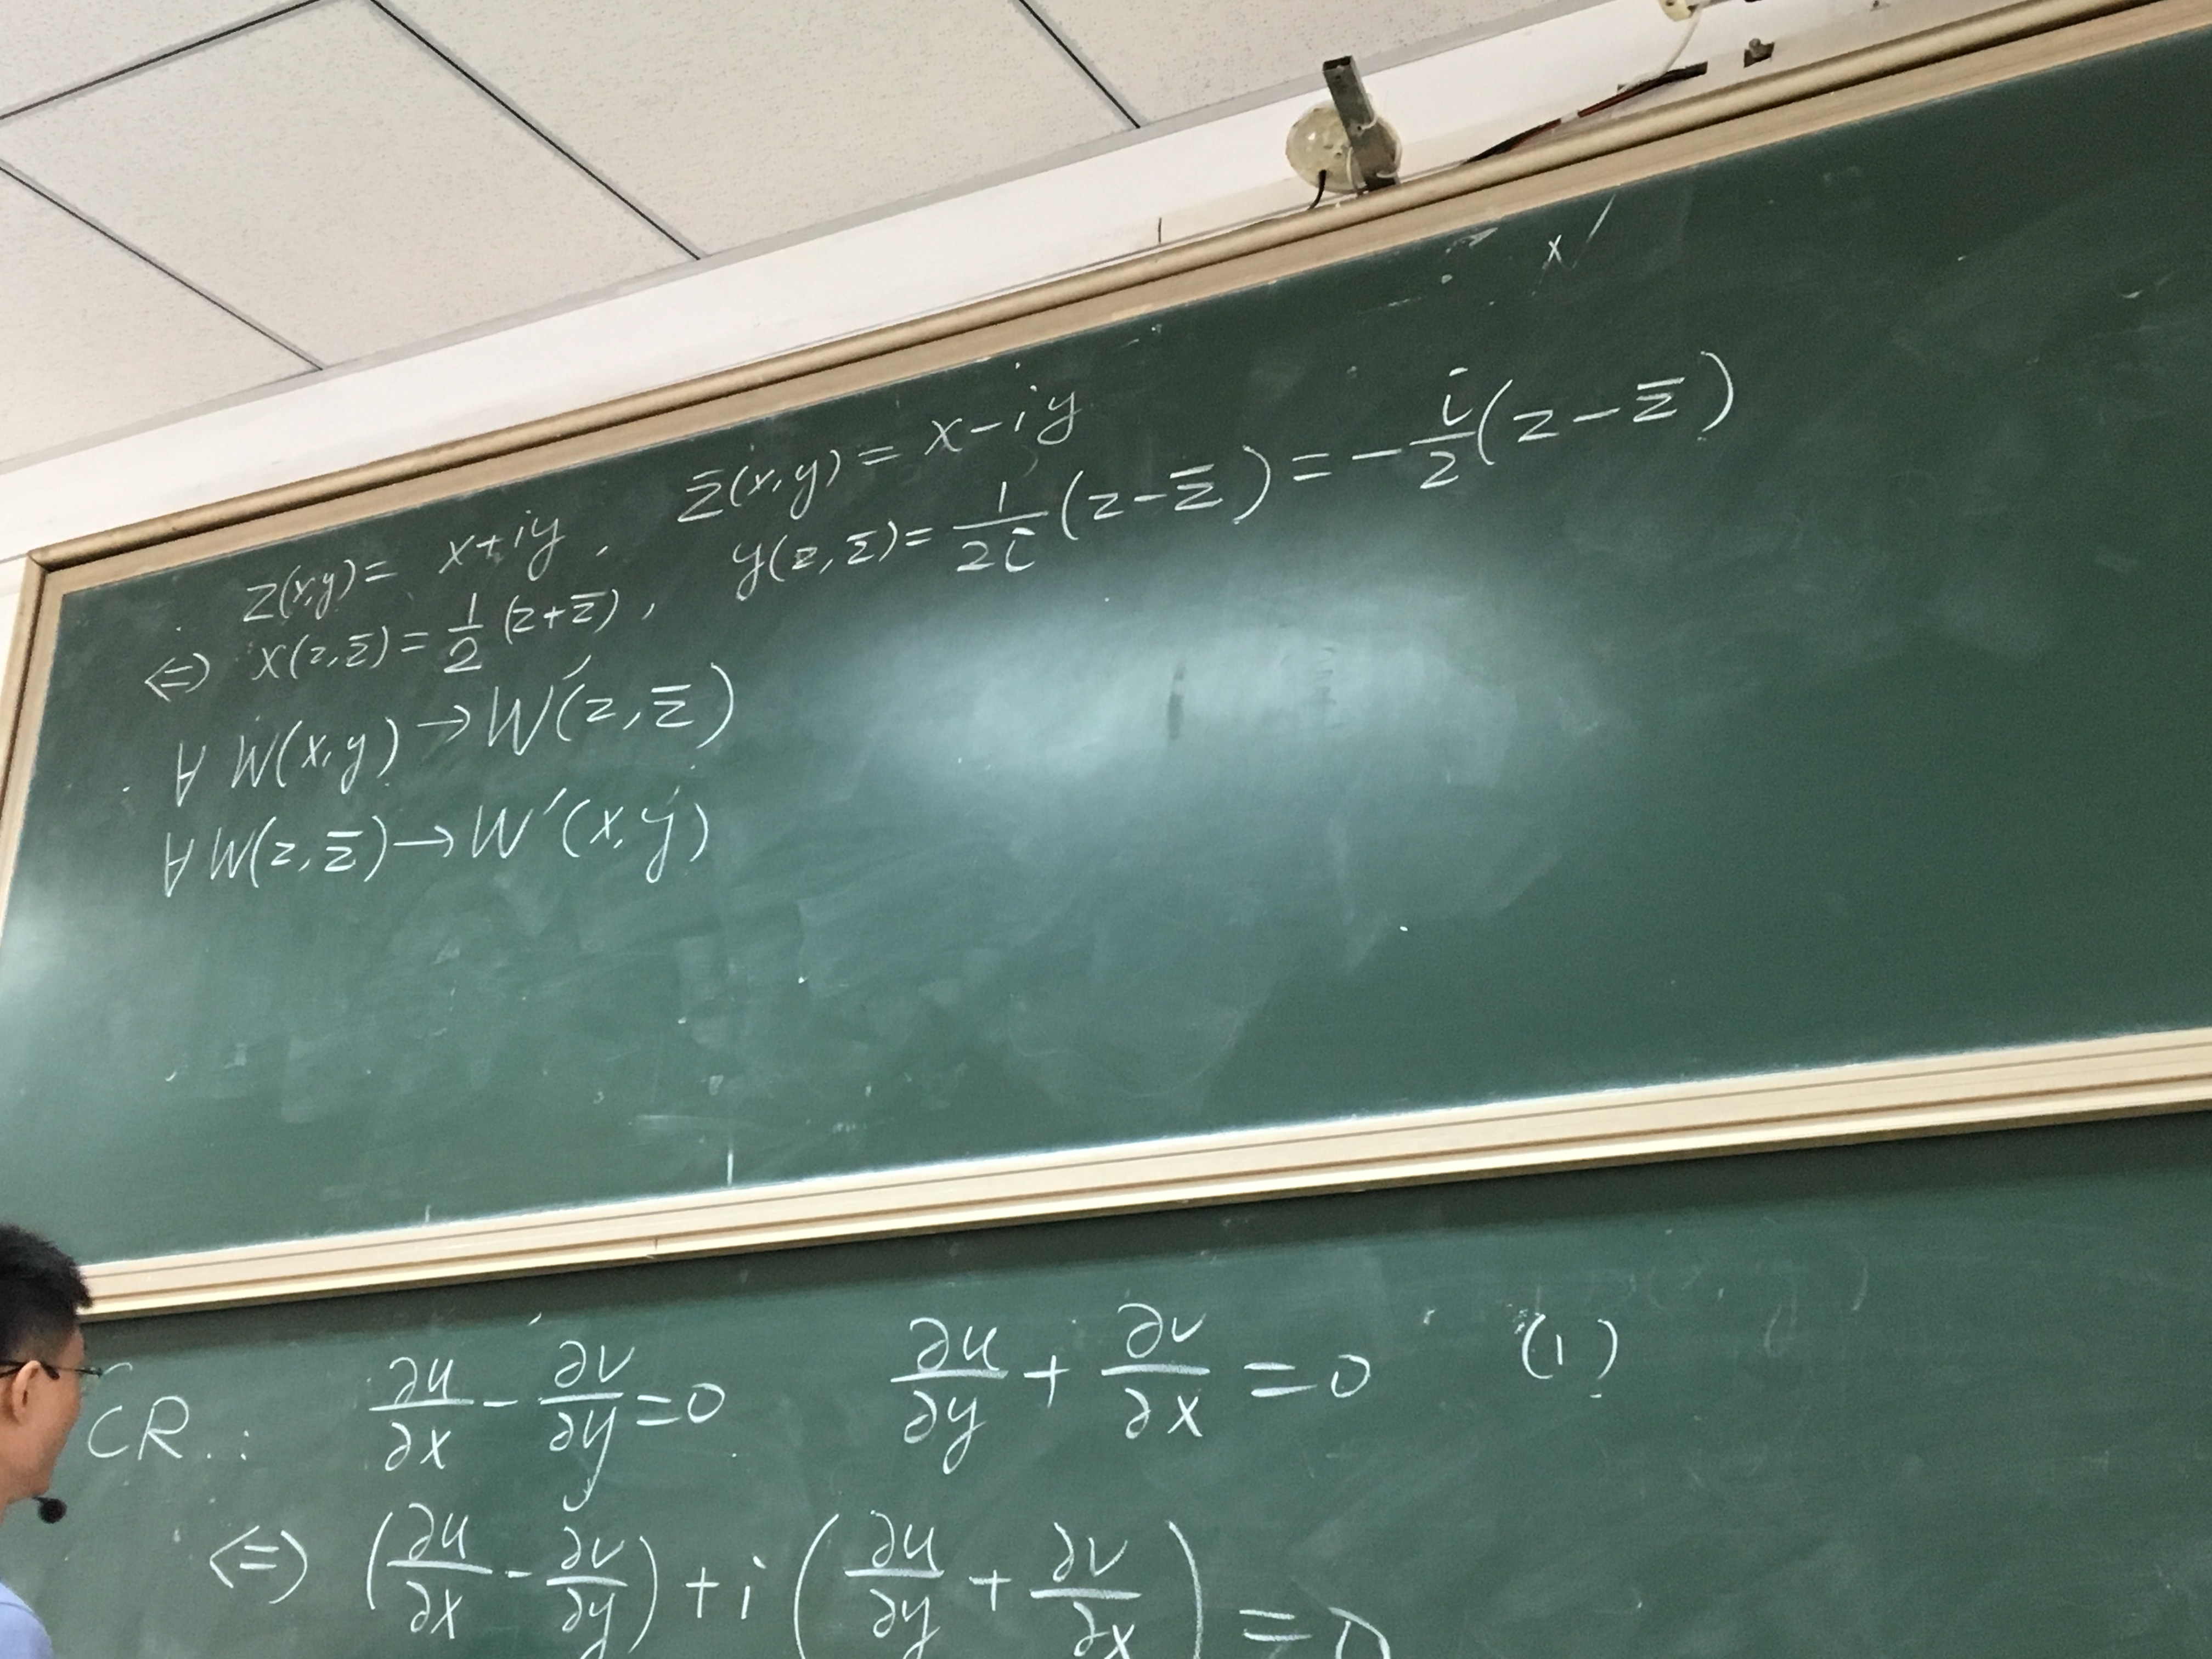 z(x,y) = x+iy, z̄(x,y) = x-iy
⇔ x(z,z̄) = 1/2 (z+z̄), y(z,z̄) = 1/2i (z-z̄) = -i/2 (z-z̄)
∀ W(x,y) → W'(z,z̄)
∀ W(z,z̄) → W'(x,y)
CR.: ∂u/∂x - ∂v/∂y = 0 ∂u/∂y + ∂v/∂x = 0 (1)
⇔ (∂u/∂x - ∂v/∂y) + i (∂u/∂y + ∂v/∂x) = 0